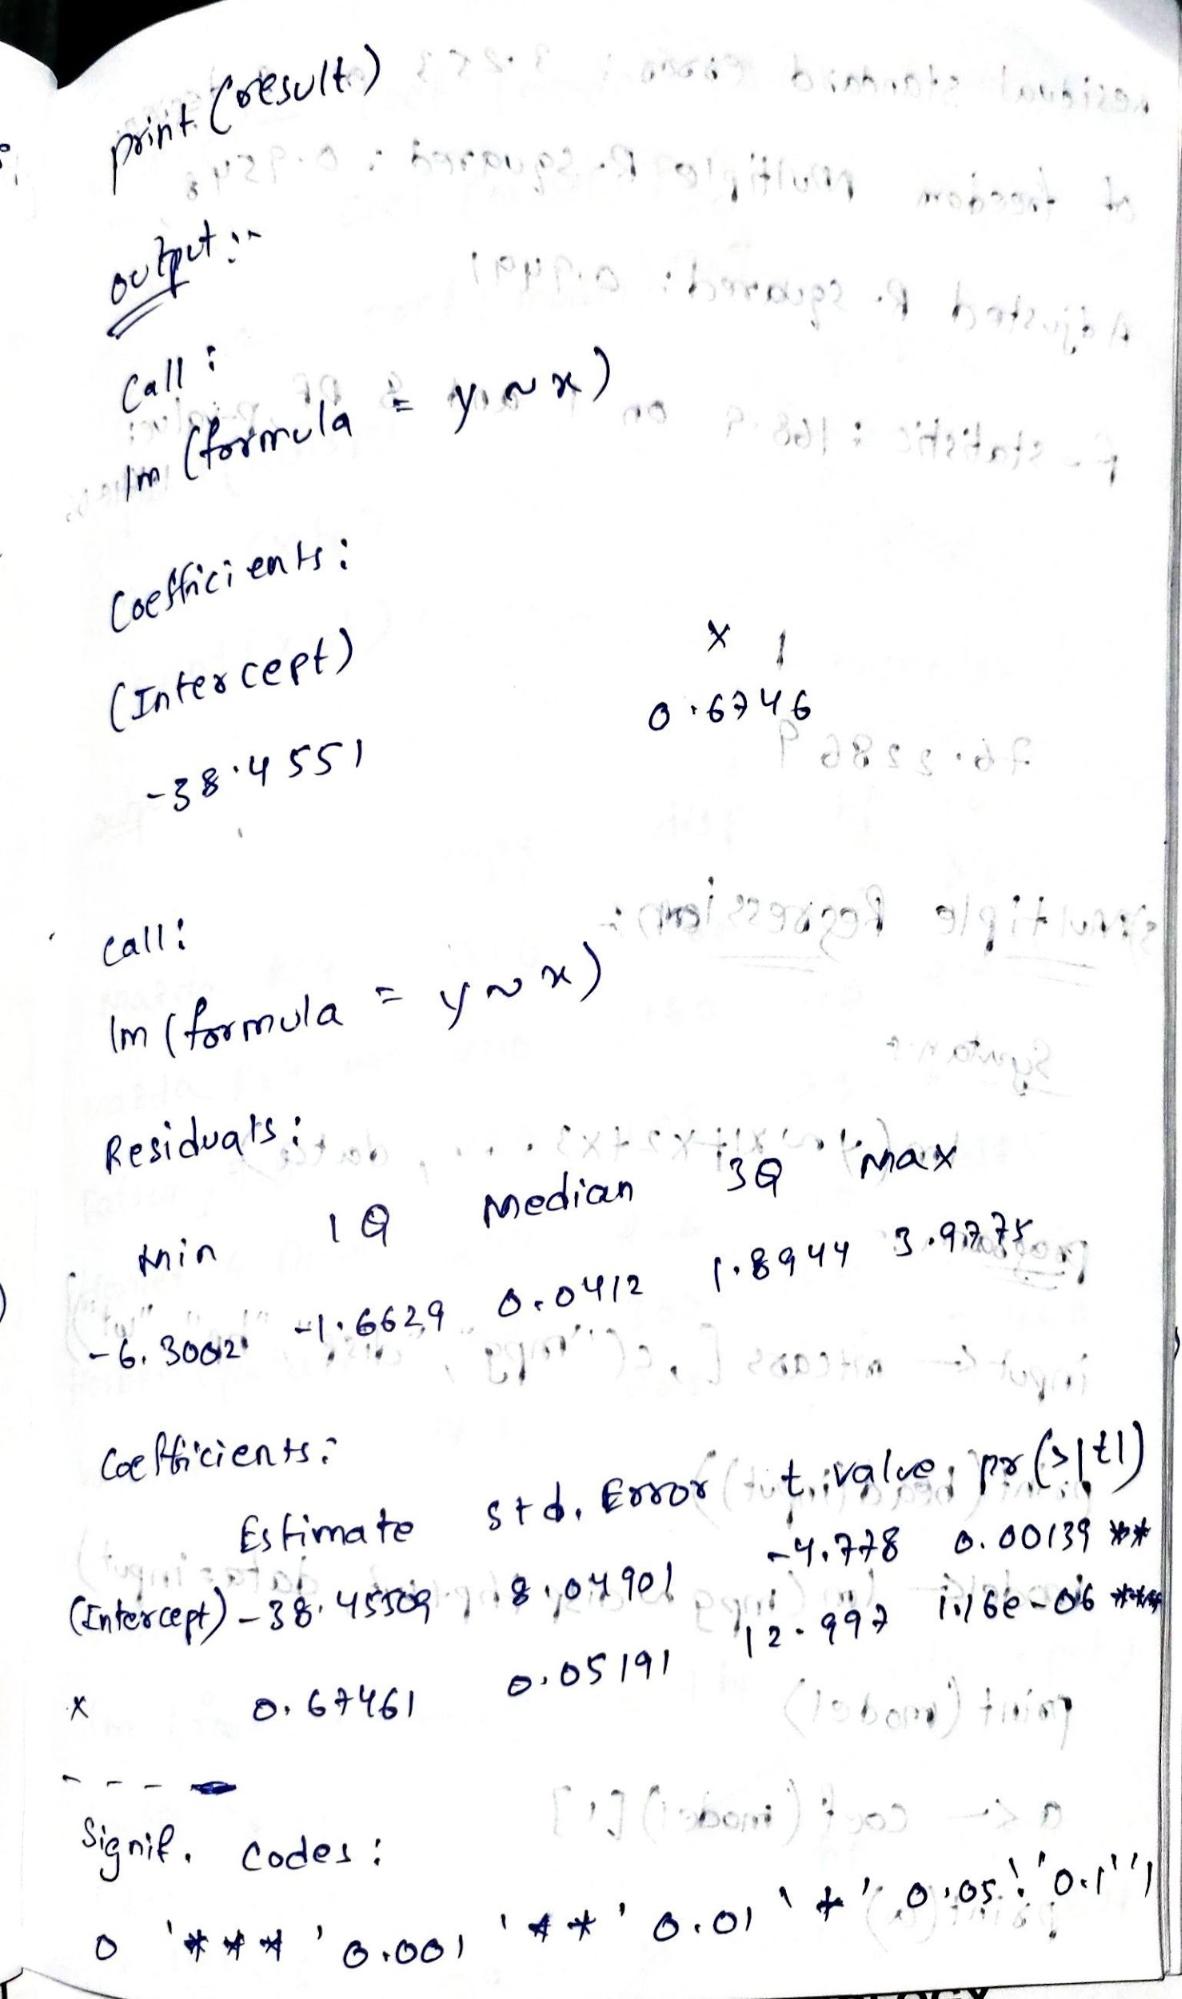 print (result)
output :-
Call :
lm (formula = y ~ x)
Coefficients :
(Intercept) x
-38.4551 0.6746
Call :
lm (formula = y ~ x)
Residuals :
Min 1Q Median 3Q Max
-6.3002 -1.6629 0.0412 1.8944 3.9775
Coefficients :
Estimate std. Error t value pr(>|t|)
(Intercept) -38.45509 8.04901 -4.778 0.00139 **
x 0.67461 0.05191 12.997 1.16e-06 ***
- - - -
Signif. codes :
0 '***' 0.001 '**' 0.01 '*' 0.05 '.' 0.1 '' 1